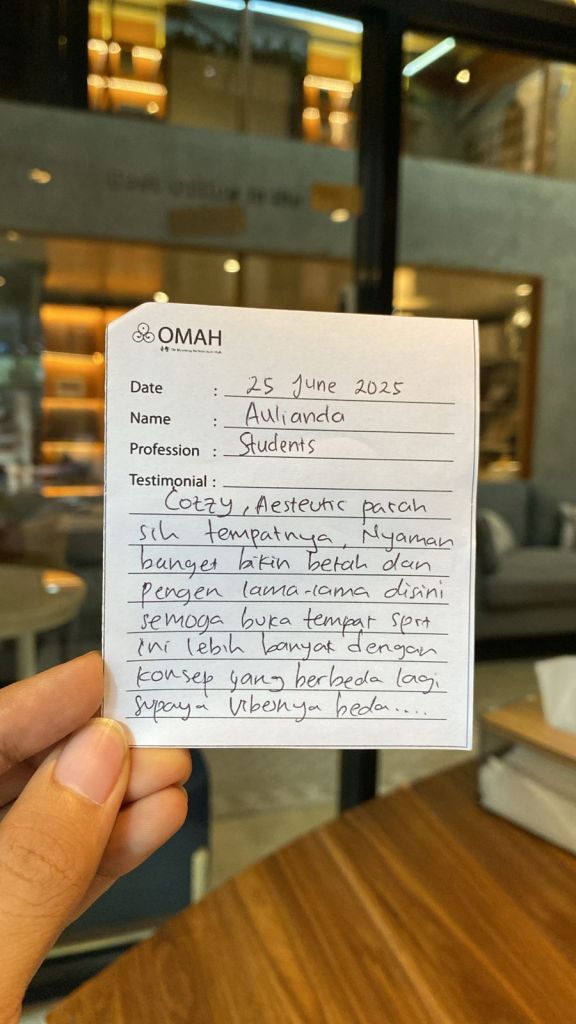 OMAH
Date : 25 June 2025
Name : Aulianda
Profession : Students
Testimonial :
Cozzy, Aesteutic parah
sih tempatnya, Nyaman
banget bikin betah dan
pengen lama-lama disini
semoga buka tempat sprt
ini lebih banyak dengan
konsep yang berbeda lagi
supaya vibesnya beda....